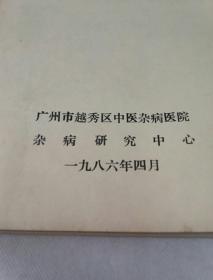 广州市越秀区中医杂病医院
杂病研究中心
一九八六年四月